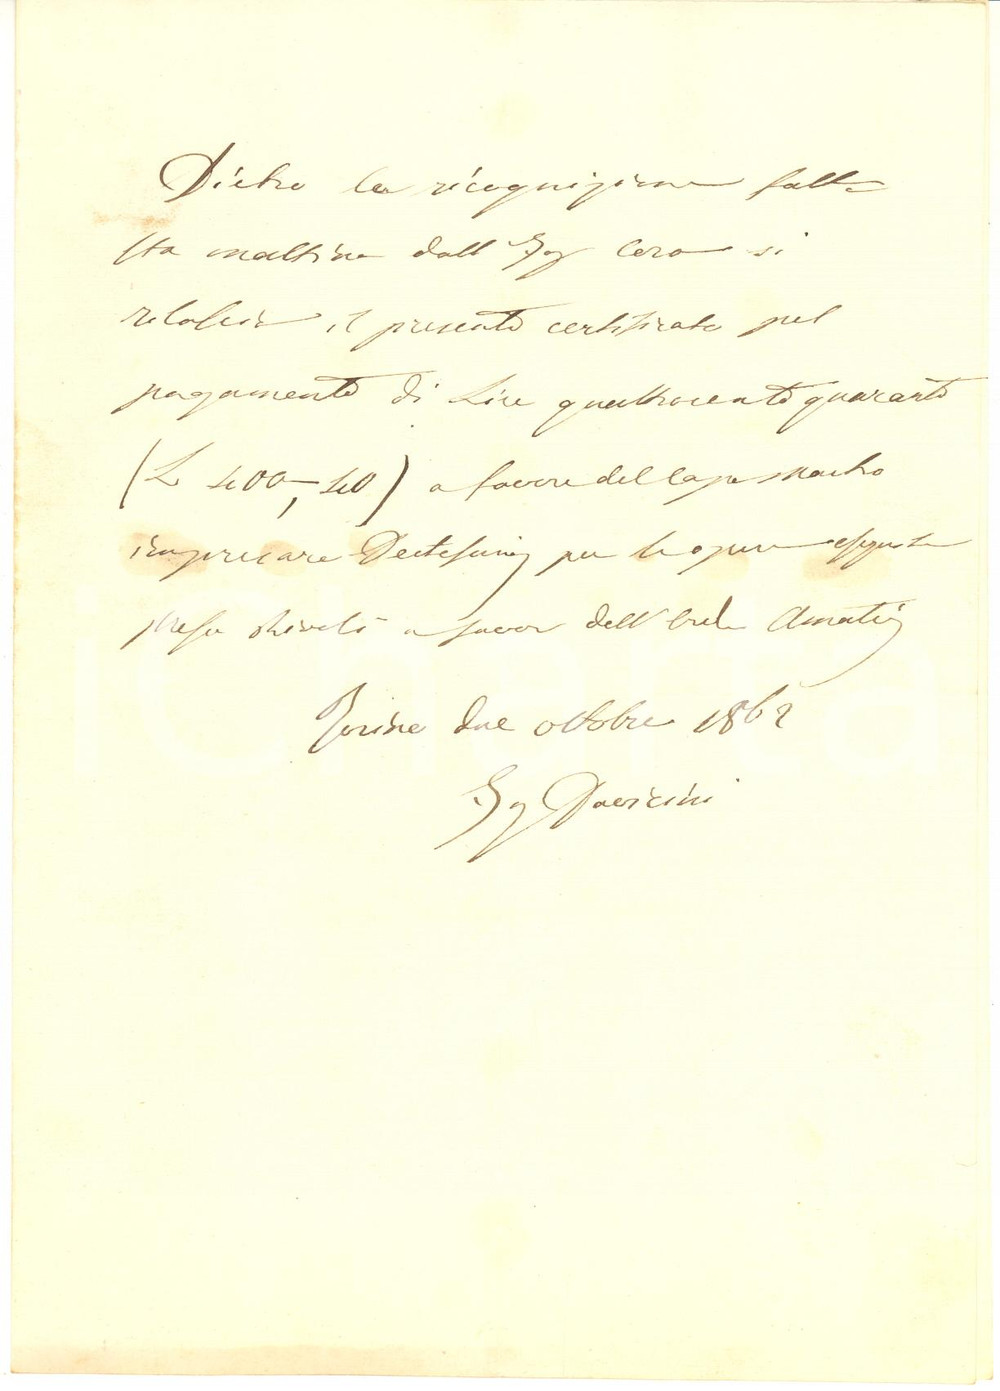 Dietro la ricognizione fatta
sta mattina dall'Ing Cera si
rilascia il presente certificato pel
pagamento di Lire quattrocento quaranta
(L 400,40) a favore del capo Mastro
impresare per le opere eseguite
presso Rivoli a favor dell' Amatis
Torino due ottobre 1862
Ing Davicini